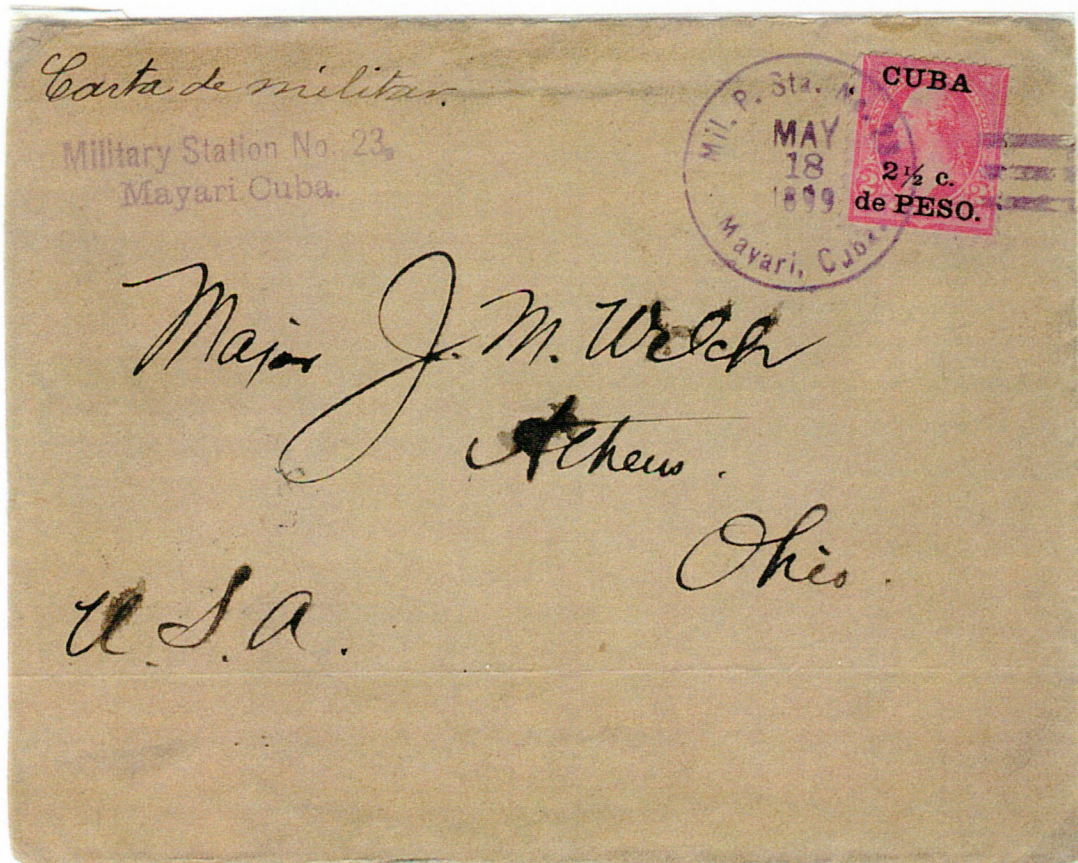 Carta de militar.
Military Station No. 23,
Mayari Cuba.
Mil. P. Sta. No.
MAY
18
1899
Mayari, Cuba.
CUBA
2½ c.
de PESO.
2 2
Major J. M. Welch
Athens.
Ohio.
U.S.A.